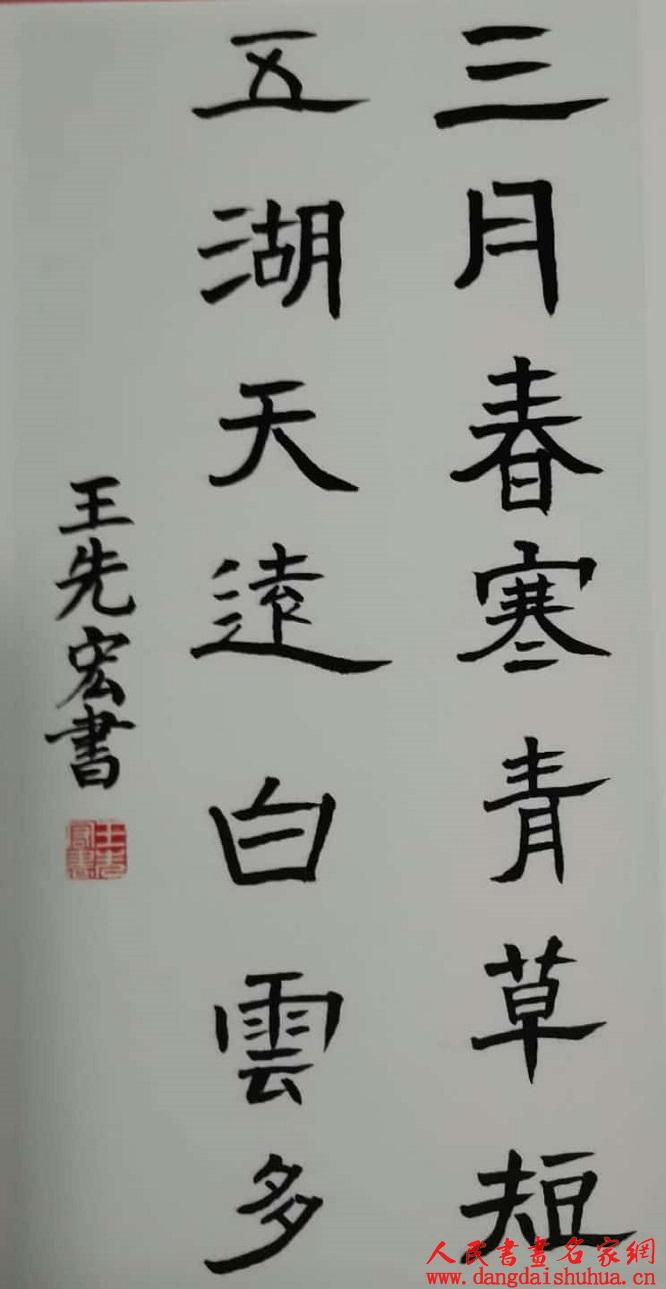 三月春寒青草短
五湖天遠白雲多
王先宏書
人民書畫名家網
www.dangdaishuhua.cn